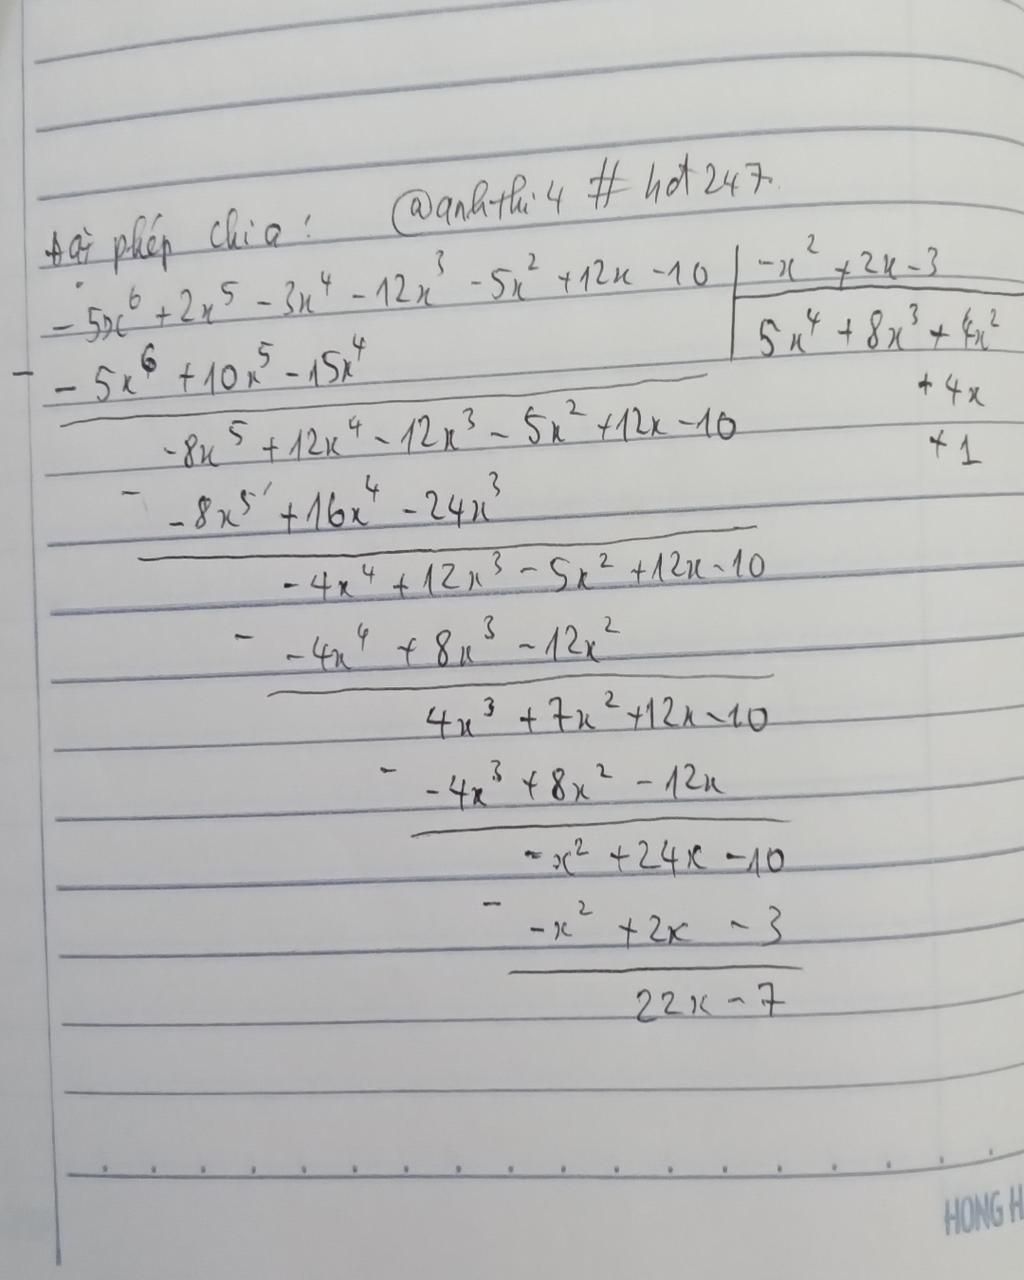 Đặt phép chia: @anhthi4 # hot247
-5x⁶ + 2x⁵ - 3x⁴ - 12x³ - 5x² + 12x - 10 | -x² + 2x - 3
- -5x⁶ + 10x⁵ - 15x⁴ | 5x⁴ + 8x³ + 4x²
+ 4x
-8x⁵ + 12x⁴ - 12x³ - 5x² + 12x - 10
+ 1
- -8x⁵ + 16x⁴ - 24x³
-4x⁴ + 12x³ - 5x² + 12x - 10
- -4x⁴ + 8x³ - 12x²
4x³ + 7x² + 12x - 10
- -4x³ + 8x² - 12x
-x² + 24x - 10
- -x² + 2x - 3
22x - 7
HONG H